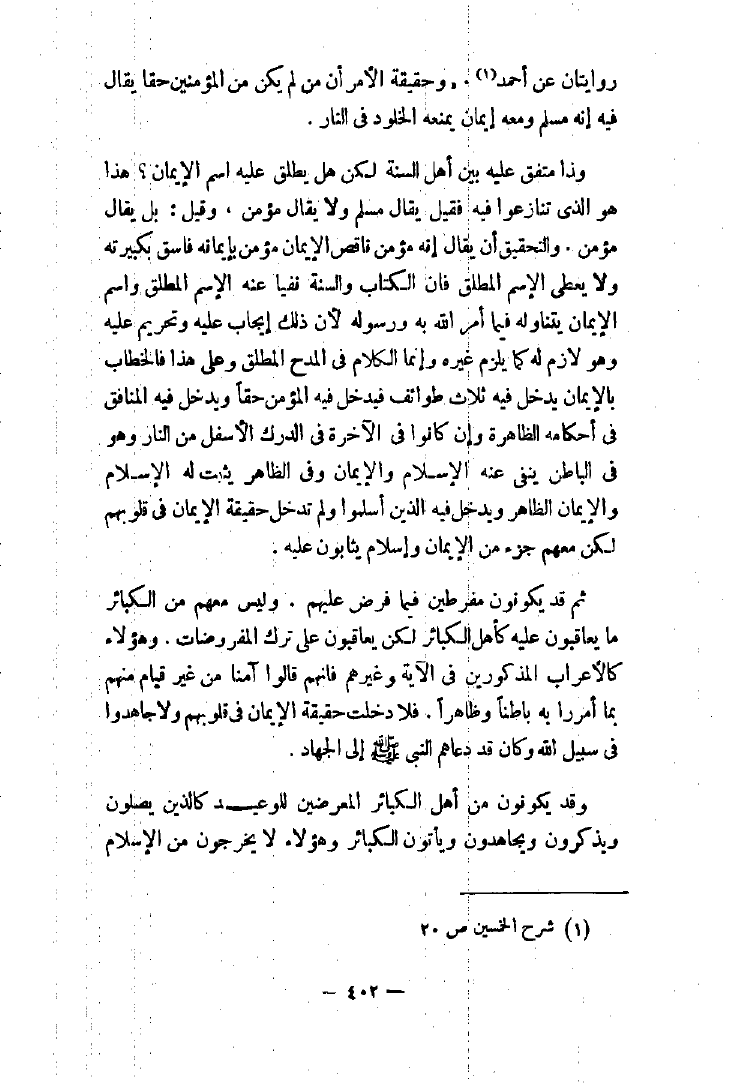 روايتان عن أحمد(١) . , وحقيقة الأمر أن من لم يكن من المؤمنين حقا يقال
فيه إنه مسلم ومعه إيمان يمنعه الخلود فى النار .
وذا متفق عليه بين أهل السنة لكن هل يطلق عليه اسم الإيمان ؟ هذا
هو الذى تنازعوا فيه فقيل يقال مسلم ولا يقال مؤمن ، وقيل : بل يقال
مؤمن . والتحقيق أن يقال إنه مؤمن ناقص الإيمان مؤمن بإيمانه فاسق بكبيرته
ولا يعطى الإسم المطلق فان الكتاب والسنة نفيا عنه الإسم المطلق واسم
الإيمان يتناوله فيما أمر الله به ورسوله لأن ذلك إيجاب عليه وتحريم عليه
وهو لازم له كما يلزم غيره وإنما الكلام فى المدح المطلق وعلى هذا فالخطاب
بالإيمان يدخل فيه ثلاث طوائف فيدخل فيه المؤمن حقاً ويدخل فيه المنافق
فى أحكامه الظاهرة وإن كانوا فى الآخرة فى الدرك الأسفل من النار وهو
فى الباطن ينفى عنه الإسلام والإيمان وفى الظاهر يثبت له الإسلام
والإيمان الظاهر ويدخل فيه الذين أسلموا ولم تدخل حقيقة الإيمان فى قلوبهم
لكن معهم جزء من الإيمان وإسلام يثابون عليه .
ثم قد يكونون مفرطين فيما فرض عليهم . وليس معهم من الكبائر
ما يعاقبون عليه كأهل الكبائر لكن يعاقبون على ترك المفروضات . وهؤلاء
كالأعراب المذكورين فى الآية وغيرهم فانهم قالوا آمنا من غير قيام منهم
بما أمررا به باطناً وظاهراً . فلا دخلت حقيقة الإيمان فى قلوبهم ولا جاهدوا
فى سبيل الله وكان قد دعاهم النبى ﷺ إلى الجهاد .
وقد يكونون من أهل الكبائر المعرضين للوعيد كالذين يصلون
ويذكرون ويجاهدون ويأتون الكبائر وهؤلاء لا يخرجون من الإسلام
(١) شرح الخمسين ص ٢٠
— ٤٠٢ —